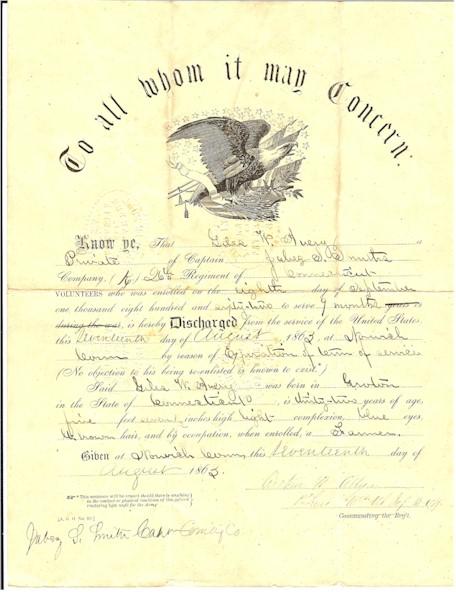 To all whom it may Concern:
Know ye, That Giles W. Avery a
Private of Captain Jabez S. Smith's
Company, (K) 26th Regiment of Connecticut
VOLUNTEERS who was enrolled on the Eighth day of September
one thousand eight hundred and sixty-two to serve 9 months years or
during the war, is hereby Discharged from the service of the United States
this Seventeenth day of August 1863 at Norwich
Conn by reason of Expiration of term of service
(No objection to his being reenlisted is known to exist.*)
Said Giles W. Avery was born in Groton
in the State of Connecticut is thirty-two years of age,
five feet seven inches high light complexion, blue eyes,
brown hair, and by occupation, when enrolled, a Farmer.
Given at Norwich Conn, this Seventeenth day of
August 1863.
*This sentence will be erased should there be anything
in the conduct or physical condition of the soldier
rendering him unfit for the Army.
[A. G. O. No. 99.]
Commanding the Reg't.
Jabez S. Smith Capt Comdg Co